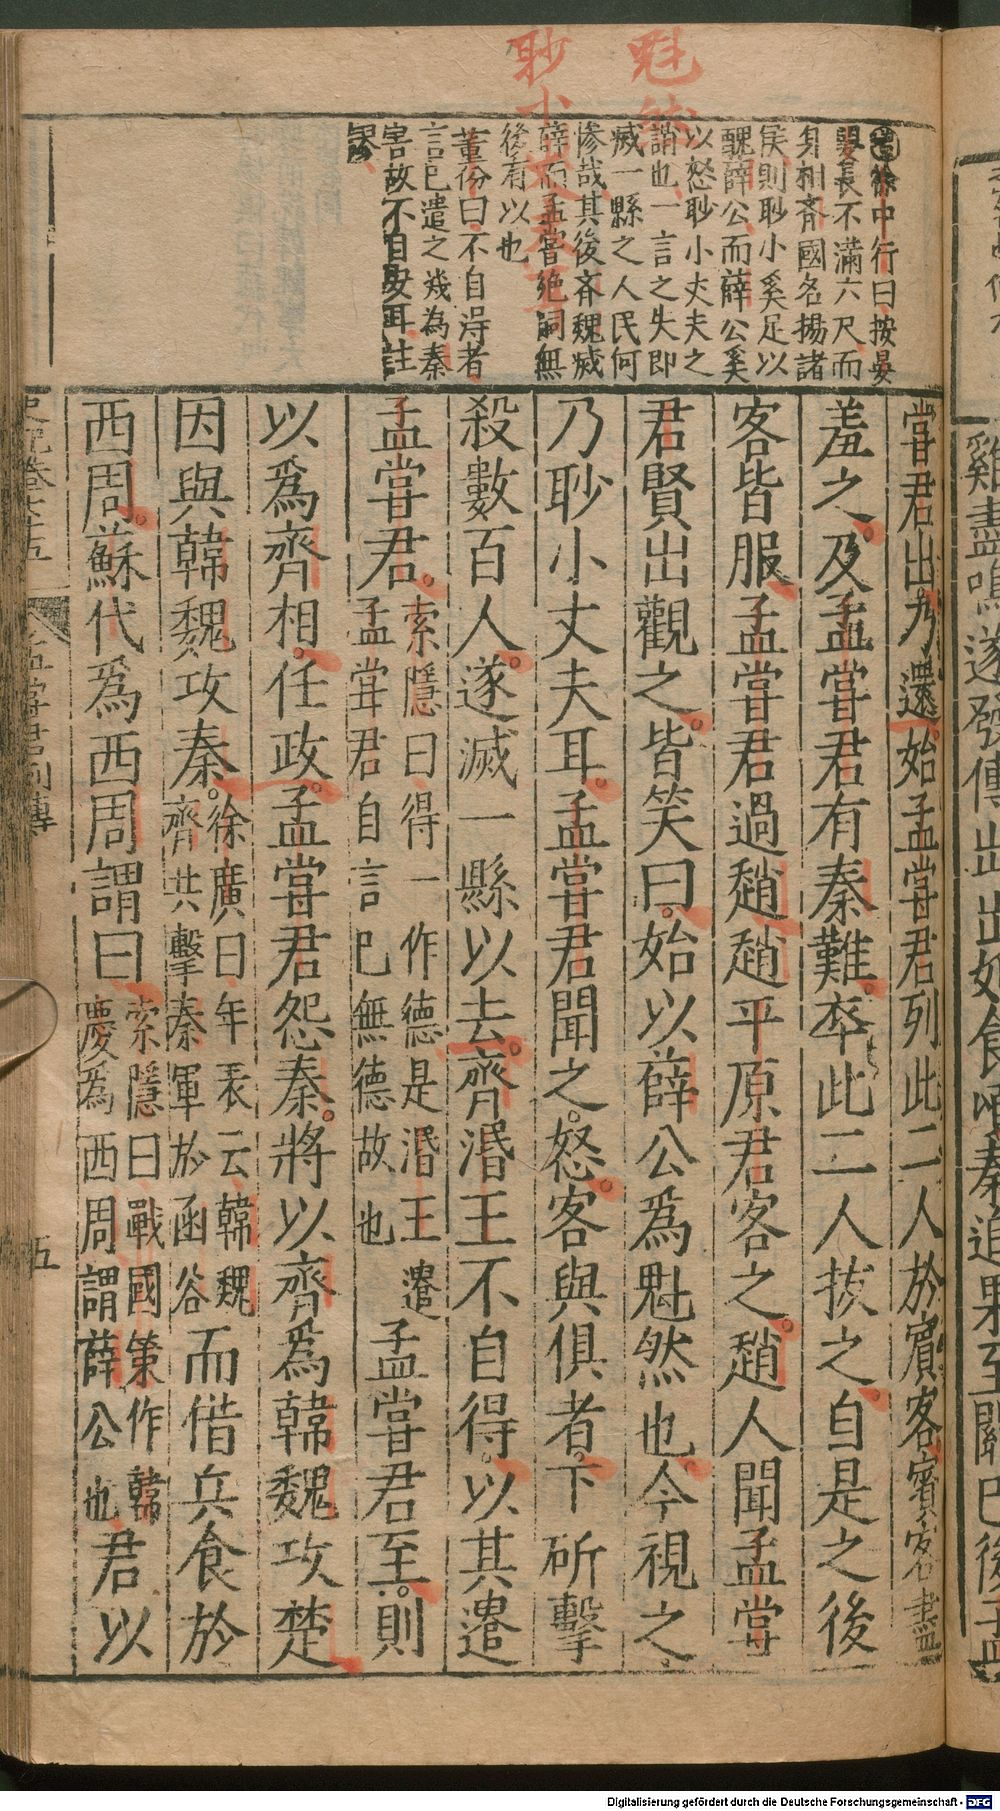 魁然
眇小丈夫
增徐中行曰按晏
嬰長不滿六尺而
身相齊國名揚諸
侯則眇小奚足以
醜薛公而薛公奚
以怒眇小丈夫之
謂也一言之失即
滅一縣之人民何
慘哉其後齊魏滅
薛而孟嘗絶嗣無
後有以也
董份曰不自淂者
言已遣之幾為秦
害故不自安耳註
嘗君出乃還始孟嘗君列此二人於賓客賓客盡
羞之及孟嘗君有秦難卒此二人拔之自是之後
客皆服孟嘗君過趙趙平原君客之趙人聞孟嘗
君賢出觀之皆笑曰始以薛公爲魁然也今視之
乃眇小丈夫耳孟嘗君聞之怒客與俱者下斫擊
殺數百人遂滅一縣以去齊湣王不自得以其遣
孟嘗君索隱曰得一作德是湣王遣孟嘗君自言已無德故也孟嘗君至則
以爲齊相任政孟嘗君怨秦將以齊爲韓魏攻楚
因與韓魏攻秦徐廣曰年表云韓魏齊共擊秦軍於函谷而借兵食於
西周蘇代爲西周謂曰索隱曰戰國策作韓慶為西周謂薛公也君以
史記卷七十五
孟嘗君列傳
五
雞盡鳴遂發傳出出如食頃秦追果至關已後孟
Digitalisierung gefördert durch die Deutsche Forschungsgemeinschaft - DFG